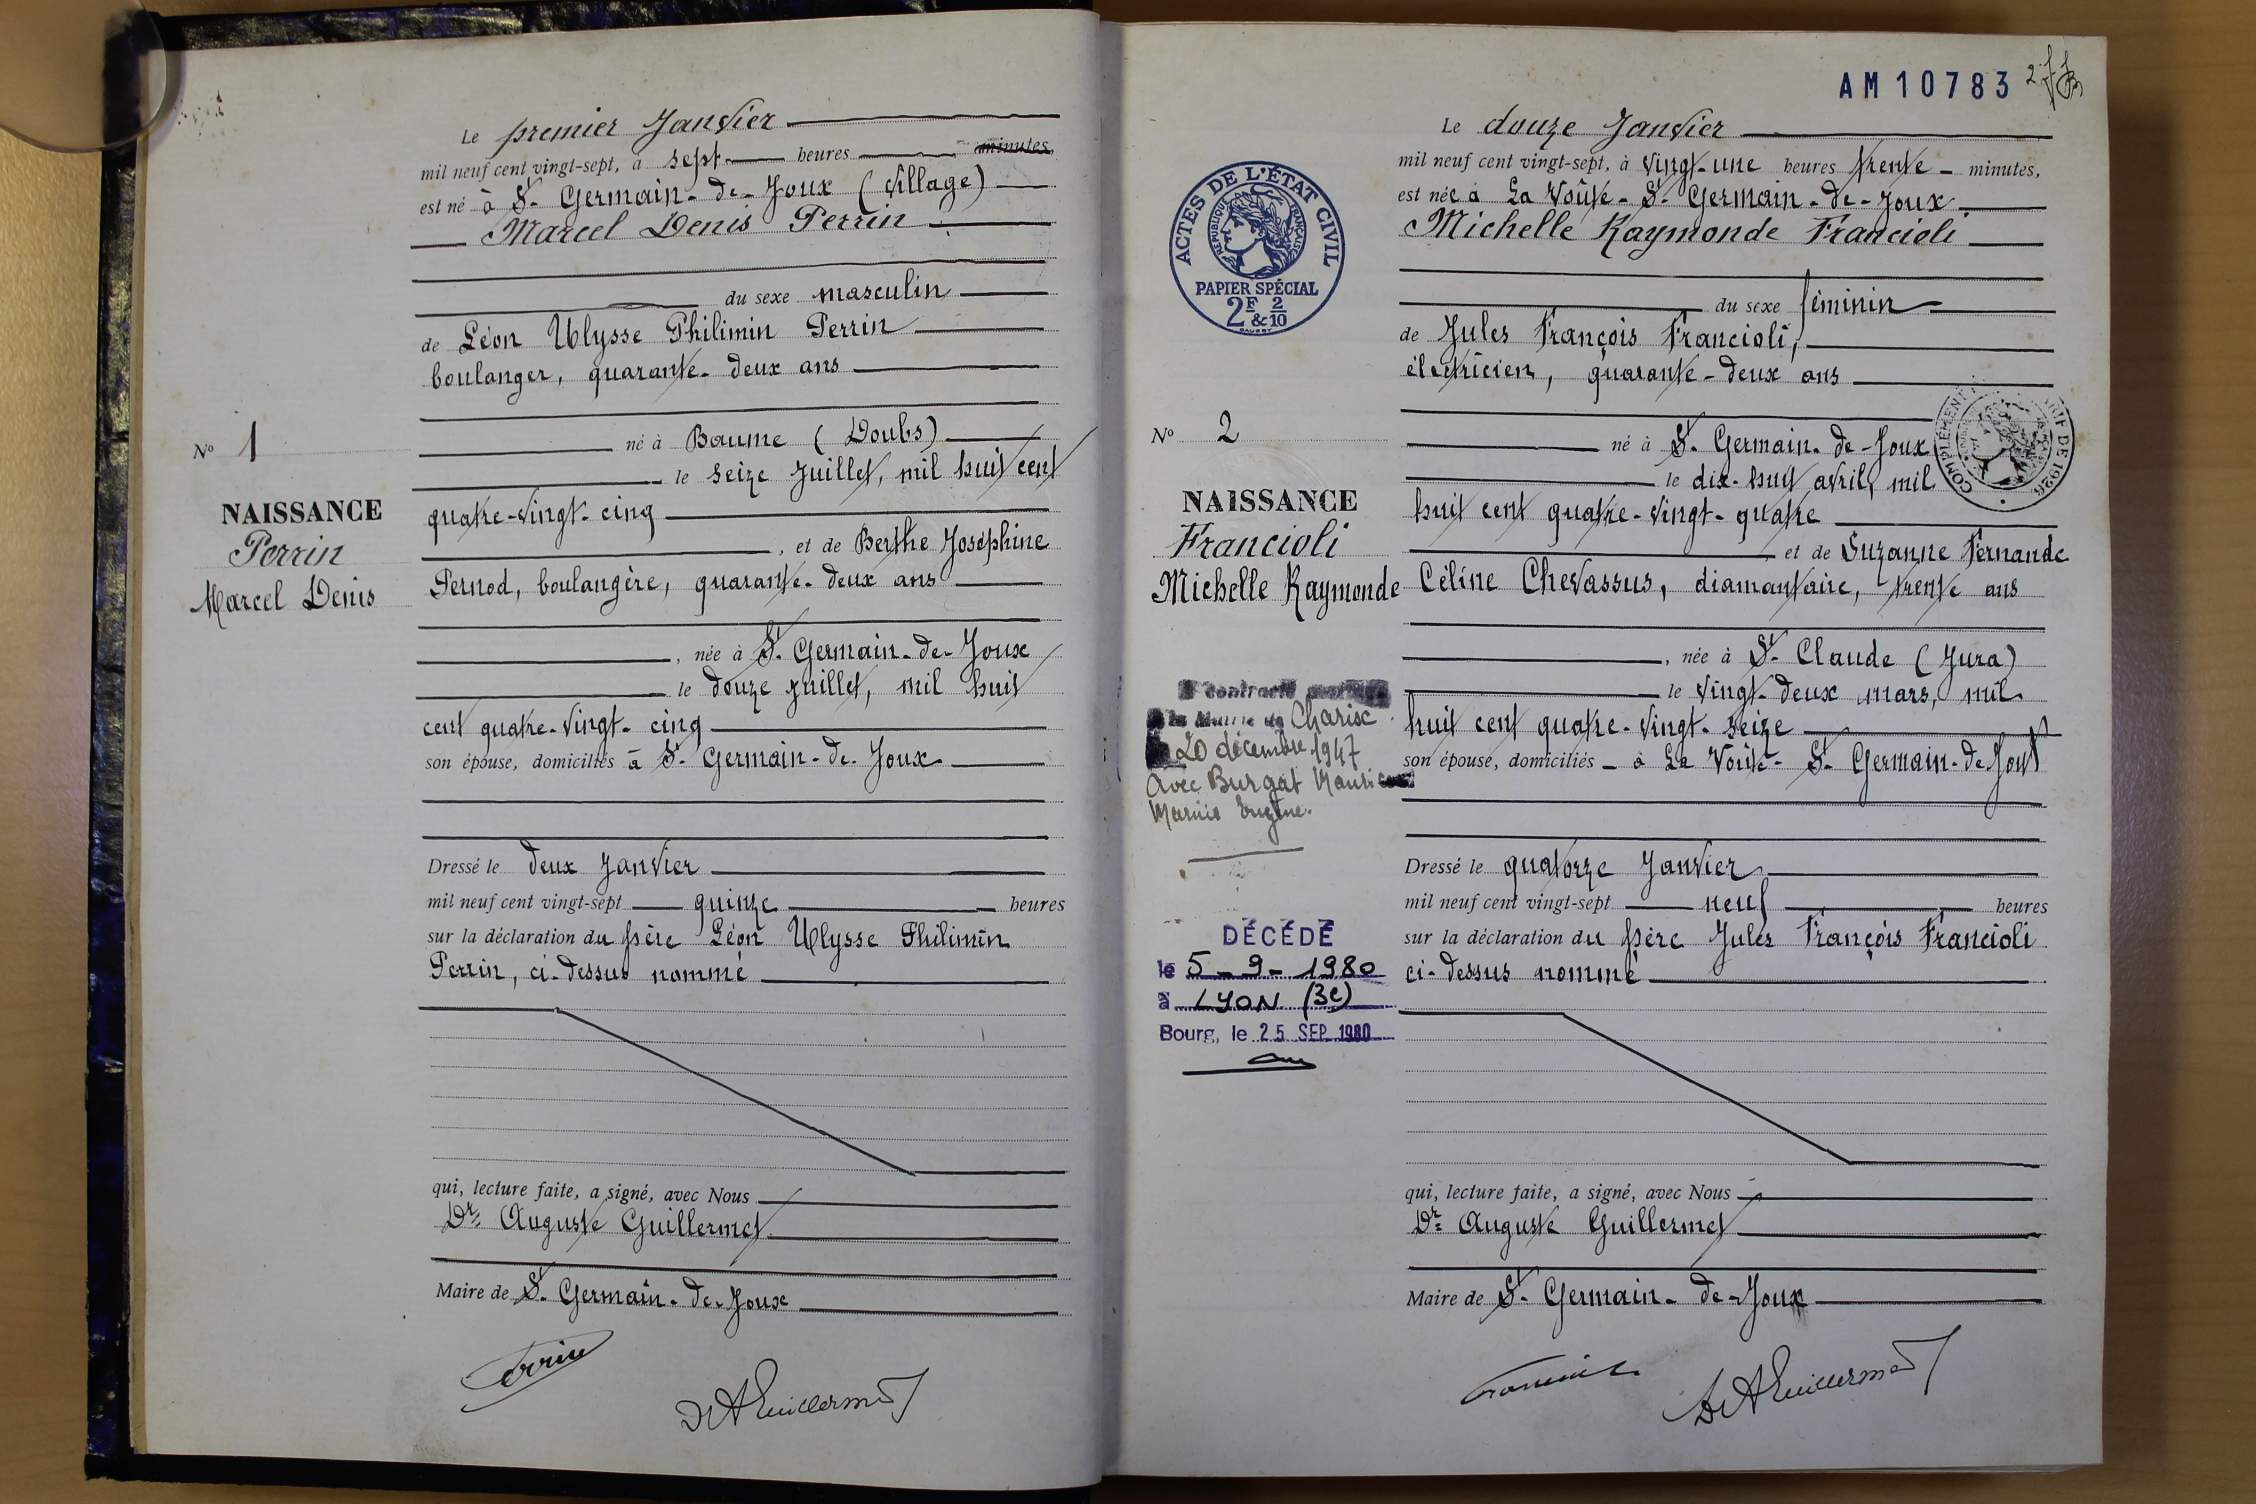 Le premier Janvier
mil neuf cent vingt-sept, à sept heures minutes,
est né à St Germain-de-Joux (Village)
Marcel Denis Perrin
du sexe masculin
de Léon Ulysse Philimin Perrin
boulanger, quarante-deux ans
né à Baume (Doubs)
le seize Juillet, mil huit cent
quatre-vingt-cinq
, et de Berthe Joséphine
Pernod, boulangère, quarante-deux ans
, née à St Germain-de-Joux
le douze juillet, mil huit
cent quatre-vingt-cinq
son épouse, domiciliés à St Germain-de-Joux
Dressé le deux Janvier
mil neuf cent vingt-sept quinze heures
sur la déclaration du père Léon Ulysse Philimin
Perrin, ci-dessus nommé
qui, lecture faite, a signé, avec Nous
Dr Auguste Guillermet
Maire de St Germain-de-Joux
Perrin
Dr A Guillermet
No 1
NAISSANCE
Perrin
Marcel Denis
AM 10783
2
ACTES DE L'ÉTAT CIVIL
RÉPUBLIQUE FRANÇAISE
PAPIER SPÉCIAL
2F & 2/10
No 2
NAISSANCE
Francioli
Michelle Raymonde
contracté
la Mairie de Charix
20 décembre 1947
avec Burgat Mauri
Marius Eugène.
DÉCÉDÉ
le 5-9-1980
à LYON (3e)
Bourg, le 25 SEP. 1980
Le douze Janvier
mil neuf cent vingt-sept, à vingt-une heures trente minutes,
est née à La Voûte-St Germain-de-Joux
Michelle Raymonde Francioli
du sexe féminin
de Jules François Francioli,
électricien, quarante-deux ans
né à St Germain-de-Joux
le dix-huit avril, mil
COMPLÉMENT TARIF DE 1926
huit cent quatre-vingt-quatre
et de Suzanne Fernande
Céline Chevassus, diamantaire, trente ans
, née à St Claude (Jura)
le vingt-deux mars, mil
huit cent quatre-vingt-seize
son épouse, domiciliés à La Voûte-St Germain-de-Joux
Dressé le quatorze Janvier
mil neuf cent vingt-sept neuf heures
sur la déclaration du père Jules François Francioli
ci-dessus nommé
qui, lecture faite, a signé, avec Nous
Dr Auguste Guillermet
Maire de St Germain-de-Joux
Francioli
Dr A Guillermet